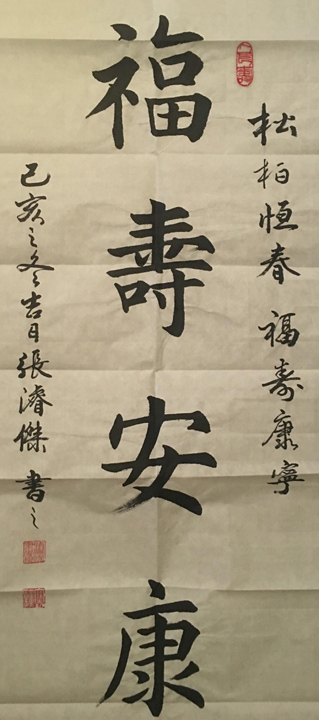 松柏恒春 福壽康寧
福壽安康
己亥之冬吉日張濬傑書之